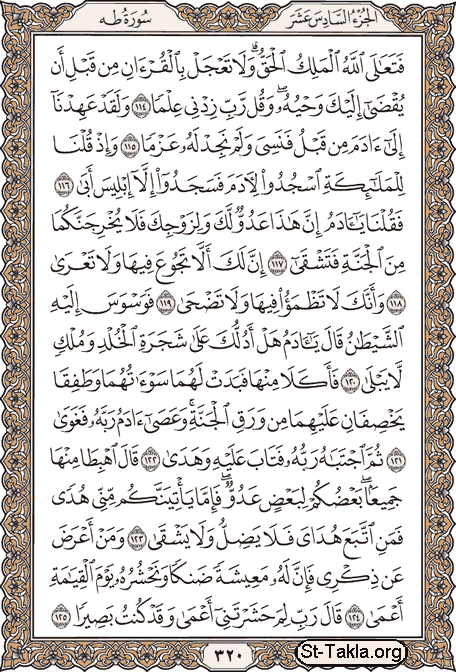 الجزء السادس عشر
سورة طه
فَتَعَٰلَى ٱللَّهُ ٱلْمَلِكُ ٱلْحَقُّ ۗ وَلَا تَعْجَلْ بِٱلْقُرْءَانِ مِن قَبْلِ أَن
يُقْضَىٰٓ إِلَيْكَ وَحْيُهُۥ ۖ وَقُل رَّبِّ زِدْنِى عِلْمًا ١١٤ وَلَقَدْ عَهِدْنَآ
إِلَىٰٓ ءَادَمَ مِن قَبْلُ فَنَسِىَ وَلَمْ نَجِدْ لَهُۥ عَزْمًا ١١٥ وَإِذْ قُلْنَا
لِلْمَلَٰٓئِكَةِ ٱسْجُدُوا۟ لِءَادَمَ فَسَجَدُوٓا۟ إِلَّآ إِبْلِيسَ أَبَىٰ ١١٦
فَقُلْنَا يَٰٓـَٔادَمُ إِنَّ هَٰذَا عَدُوٌّ لَّكَ وَلِزَوْجِكَ فَلَا يُخْرِجَنَّكُمَا
مِنَ ٱلْجَنَّةِ فَتَشْقَىٰٓ ١١٧ إِنَّ لَكَ أَلَّا تَجُوعَ فِيهَا وَلَا تَعْرَىٰ
١١٨ وَأَنَّكَ لَا تَظْمَؤُا۟ فِيهَا وَلَا تَضْحَىٰ ١١٩ فَوَسْوَسَ إِلَيْهِ
ٱلشَّيْطَٰنُ قَالَ يَٰٓـَٔادَمُ هَلْ أَدُلُّكَ عَلَىٰ شَجَرَةِ ٱلْخُلْدِ وَمُلْكٍ
لَّا يَبْلَىٰ ١٢٠ فَأَكَلَا مِنْهَا فَبَدَتْ لَهُمَا سَوْءَٰتُهُمَا وَطَفِقَا
يَخْصِفَانِ عَلَيْهِمَا مِن وَرَقِ ٱلْجَنَّةِ ۚ وَعَصَىٰٓ ءَادَمُ رَبَّهُۥ فَغَوَىٰ
١٢١ ثُمَّ ٱجْتَبَٰهُ رَبُّهُۥ فَتَابَ عَلَيْهِ وَهَدَىٰ ١٢٢ قَالَ ٱهْبِطَا مِنْهَا
جَمِيعًۢا ۖ بَعْضُكُمْ لِبَعْضٍ عَدُوٌّ ۖ فَإِمَّا يَأْتِيَنَّكُم مِّنِّى هُدًى
فَمَنِ ٱتَّبَعَ هُدَاىَ فَلَا يَضِلُّ وَلَا يَشْقَىٰ ١٢٣ وَمَنْ أَعْرَضَ
عَن ذِكْرِى فَإِنَّ لَهُۥ مَعِيشَةً ضَنكًا وَنَحْشُرُهُۥ يَوْمَ ٱلْقِيَٰمَةِ
أَعْمَىٰ ١٢٤ قَالَ رَبِّ لِمَ حَشَرْتَنِىٓ أَعْمَىٰ وَقَدْ كُنتُ بَصِيرًا ١٢٥
٣٢٠
St-Takla.org